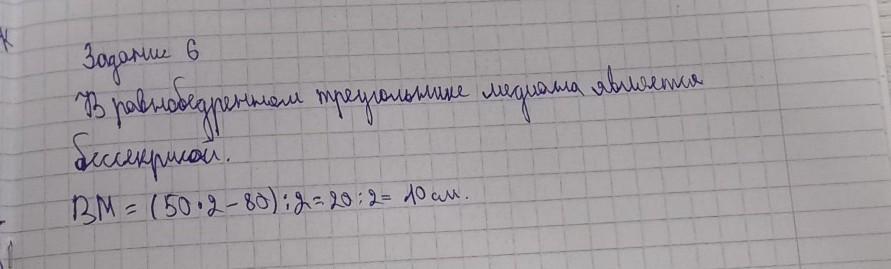 Задание 6
В равнобедренном треугольнике медиана является
биссектрисой.
BM = (50·2-80):2=20:2= 10 см.